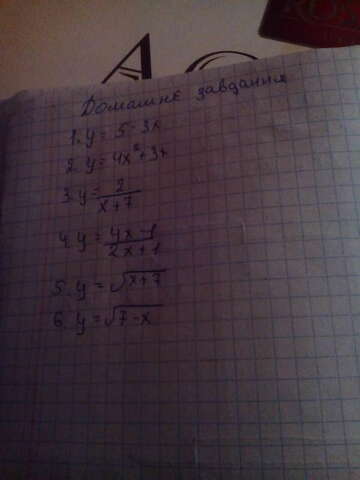 Домашнє завдання
1. y = 5 - 3x
2. y = 4x² + 3x
3. y = 2/(x+7)
4. y = (4x-1)/(2x+1)
5. y = √(x+7)
6. y = √(7-x)